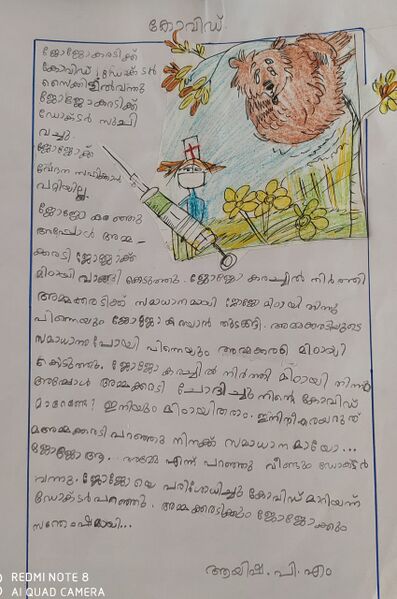 കോവിഡ്.
ജോജോകരടിക്ക്
കോവിഡ്. ഡോക്ടർ
സൈക്കിളിൽവന്നു
ജോജോക്കരടിക്ക്
ഡോക്ടർ സൂചി
വച്ചു.
ജോജോക്ക്
വേദന സഹിക്കാൻ
പറ്റിയില്ല.
ജോജോ കരഞ്ഞു
അപ്പോൾ അമ്മ -
ക്കരടി ജോജോക്ക്
മിഠായി വാങ്ങി കൊടുത്തു. ജോജോ കരച്ചിൽ നിർത്തി
അമ്മക്കരടിക്ക് സമാധാനമായി ജോജോ മിഠായി തിന്നു
പിന്നെയും ജോജോ കരയാൻ തുടങ്ങി. അമ്മക്കരടിയുടെ
സമാധാനം പോയി പിന്നെയും അമ്മക്കരടി മിഠായി
കൊടുത്തു. ജോജോ കരച്ചിൽ നിർത്തി മിഠായി തിന്നു
അപ്പോൾ അമ്മക്കരടി ചോദിച്ചു നിന്റെ കോവിഡ്
മാറേണ്ടേ? ഇനിയും മിഠായിതരാം. ഇനിനീകരയരുത്
അമ്മക്കരടി പറഞ്ഞു നിനക്ക് സമാധാനമായോ...
ജോജോ ആ.. അമ്മേ എന്ന് പറഞ്ഞു വീണ്ടും ഡോക്ടർ
വന്നു. ജോജോയെ പരിശോധിച്ചു കോവിഡ് മാറിയെന്ന്
ഡോക്ടർപറഞ്ഞു. അമ്മക്കരടിക്കും ജോജോക്കും
സന്തോഷമായി...
ആയിഷ. പി. എം
REDMI NOTE 8
AI QUAD CAMERA